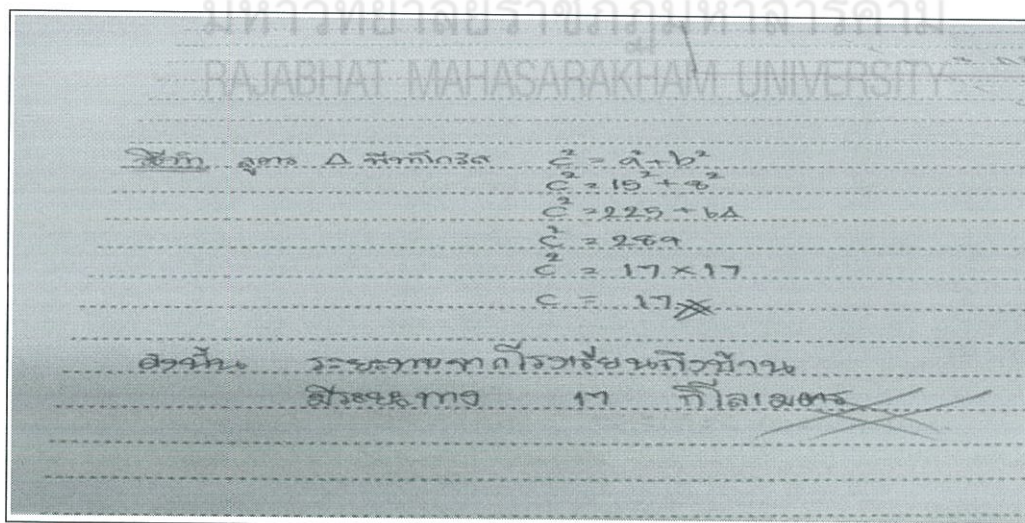 มหาวิทยาลัยราชภัฏมหาสารคาม
RAJABHAT MAHASARAKHAM UNIVERSITY
วิธีทำ สูตร Δ พีทาโกรัส c² = a² + b²
c² = 15² + 8²
c² = 225 + 64
c² = 289
c² = 17 × 17
c = 17
ดังนั้น ระยะทางจากโรงเรียนถึงบ้าน
มีระยะทาง 17 กิโลเมตร